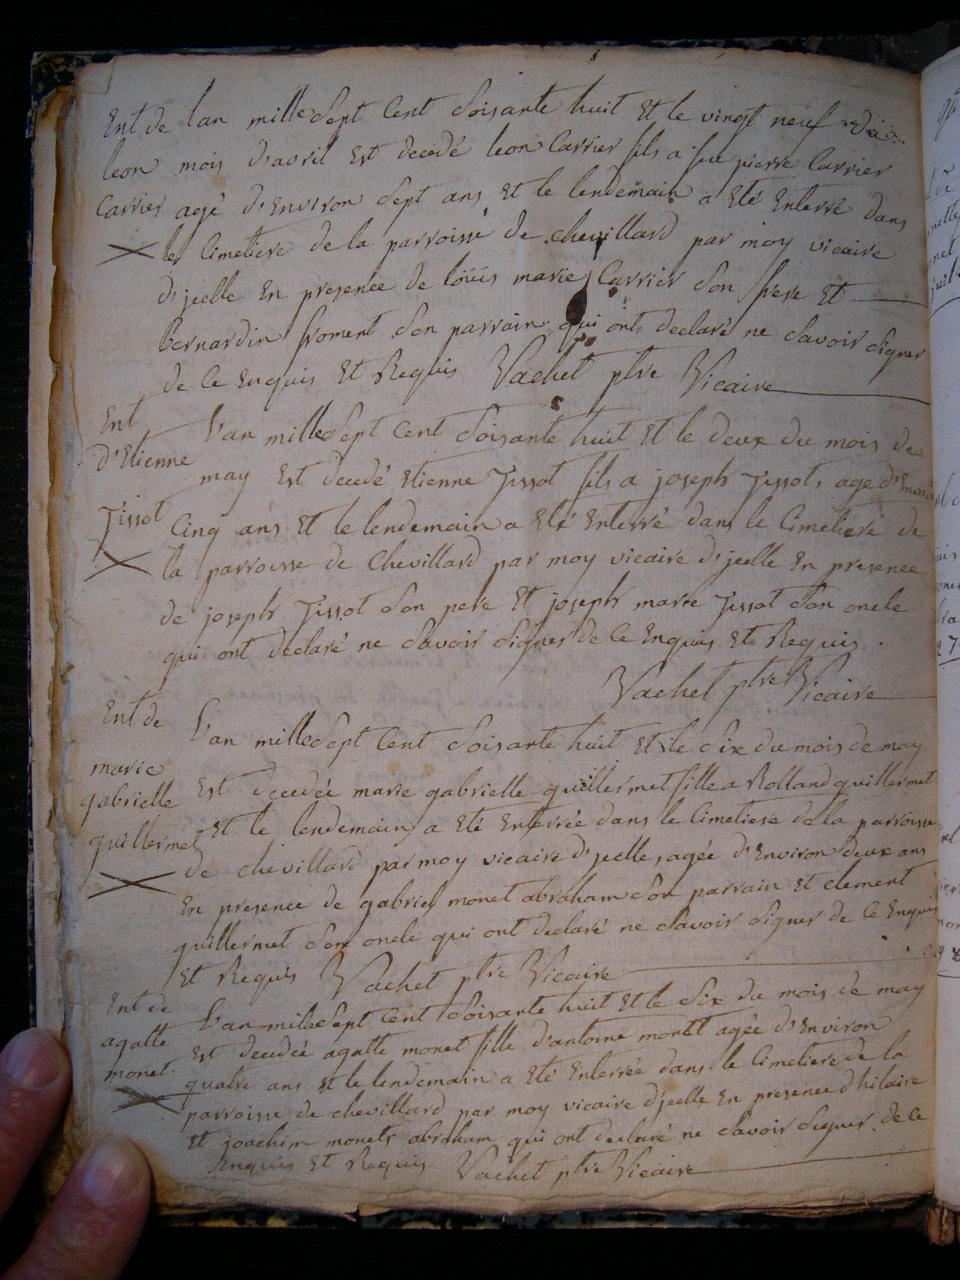 Ent de lan mille sept cent soisante huit Et le vingt neuf du
leon mois d'avril Est decedé leon Carrier fils a feu pierre Carrier
Carrier agé d'Environ sept ans Et le lendemain a Eté Enterré dans
le Cimetiere de la parroisse de chevillard par moy vicaire
d'jcelle En presence de loüis marie Carrier son frere Et
Bernardin froment son parrain qui onts declaré ne savoir signer
de ce Enquis Et Requis Vachet ptre Vicaire
Ent
d'Etienne
Tissot
L'an mille sept Cent soisante huit Et le deux du mois de
may Est decedé Etienne Tissot fils a joseph Tissots agé d'Environ
Cinq ans Et le lendemain a Eté Enterré dans le Cimetiere de
la parroisse de Chevillard par moy vicaire d'jcelle En presence
de joseph Tissot son pere Et joseph marie Tissot son oncle
qui ont declaré ne savoir signer de ce Enquis Et Requis
Vachet ptre Vicaire
Ent de
marie
gabrielle
guillermet
L'an mille sept Cent soisante huit Et le six du mois de may
Est decedée marie gabrielle guillermet fille a Rolland guillermet
Et le lendemain a Eté Enterrée dans le Cimetiere de la parroisse
de chevillard par moy vicaire d'jcelle, agée d'Environ deux ans
En presence de gabriel monet abraham son parrain Et clement
guillermet son oncle qui ont declaré ne savoir signer de ce Enquis
Et Requis Vachet ptre Vicaire
Ent de
agatte
monet
L'an mille sept Cent soisante huit Et le six du mois de may
Est decedée agatte monet fille d'antoine monet agée d'Environ
quatre ans Et le lendemain a Eté Enterrée dans le Cimetiere de la
parroisse de chevillard par moy vicaire djcelle En presence d'hilaire
Et joachim monets abraham qui ont declaré ne savoir signer de ce
Enquis Et Requis Vachet ptre Vicaire